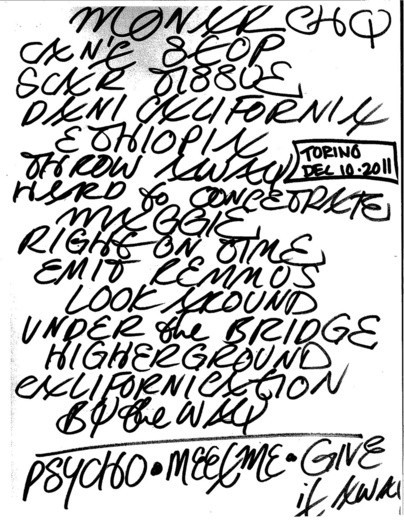 MONARCHO
CAN'T STOP
SCAR TISSUE
DANI CALIFORNIA
ETHIOPIA
THROW AWAY
TORINO
DEC 10·2011
HARD to CONCETRATE
MAGGIE
RIGHT ON TIME
EMIT REMMUS
LOOK AROUND
UNDER the BRIDGE
HIGHERGROUND
CALIFORNICATION
BY the WAY
PSYCHO • MEET ME • GIVE
it AWAY